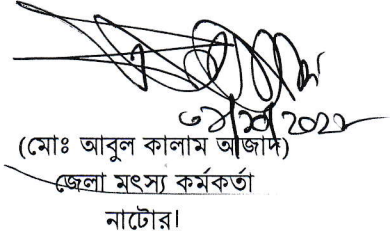 (মোঃ আবুল কালাম আজাদ)
জেলা মৎস্য কর্মকর্তা
নাটোর।